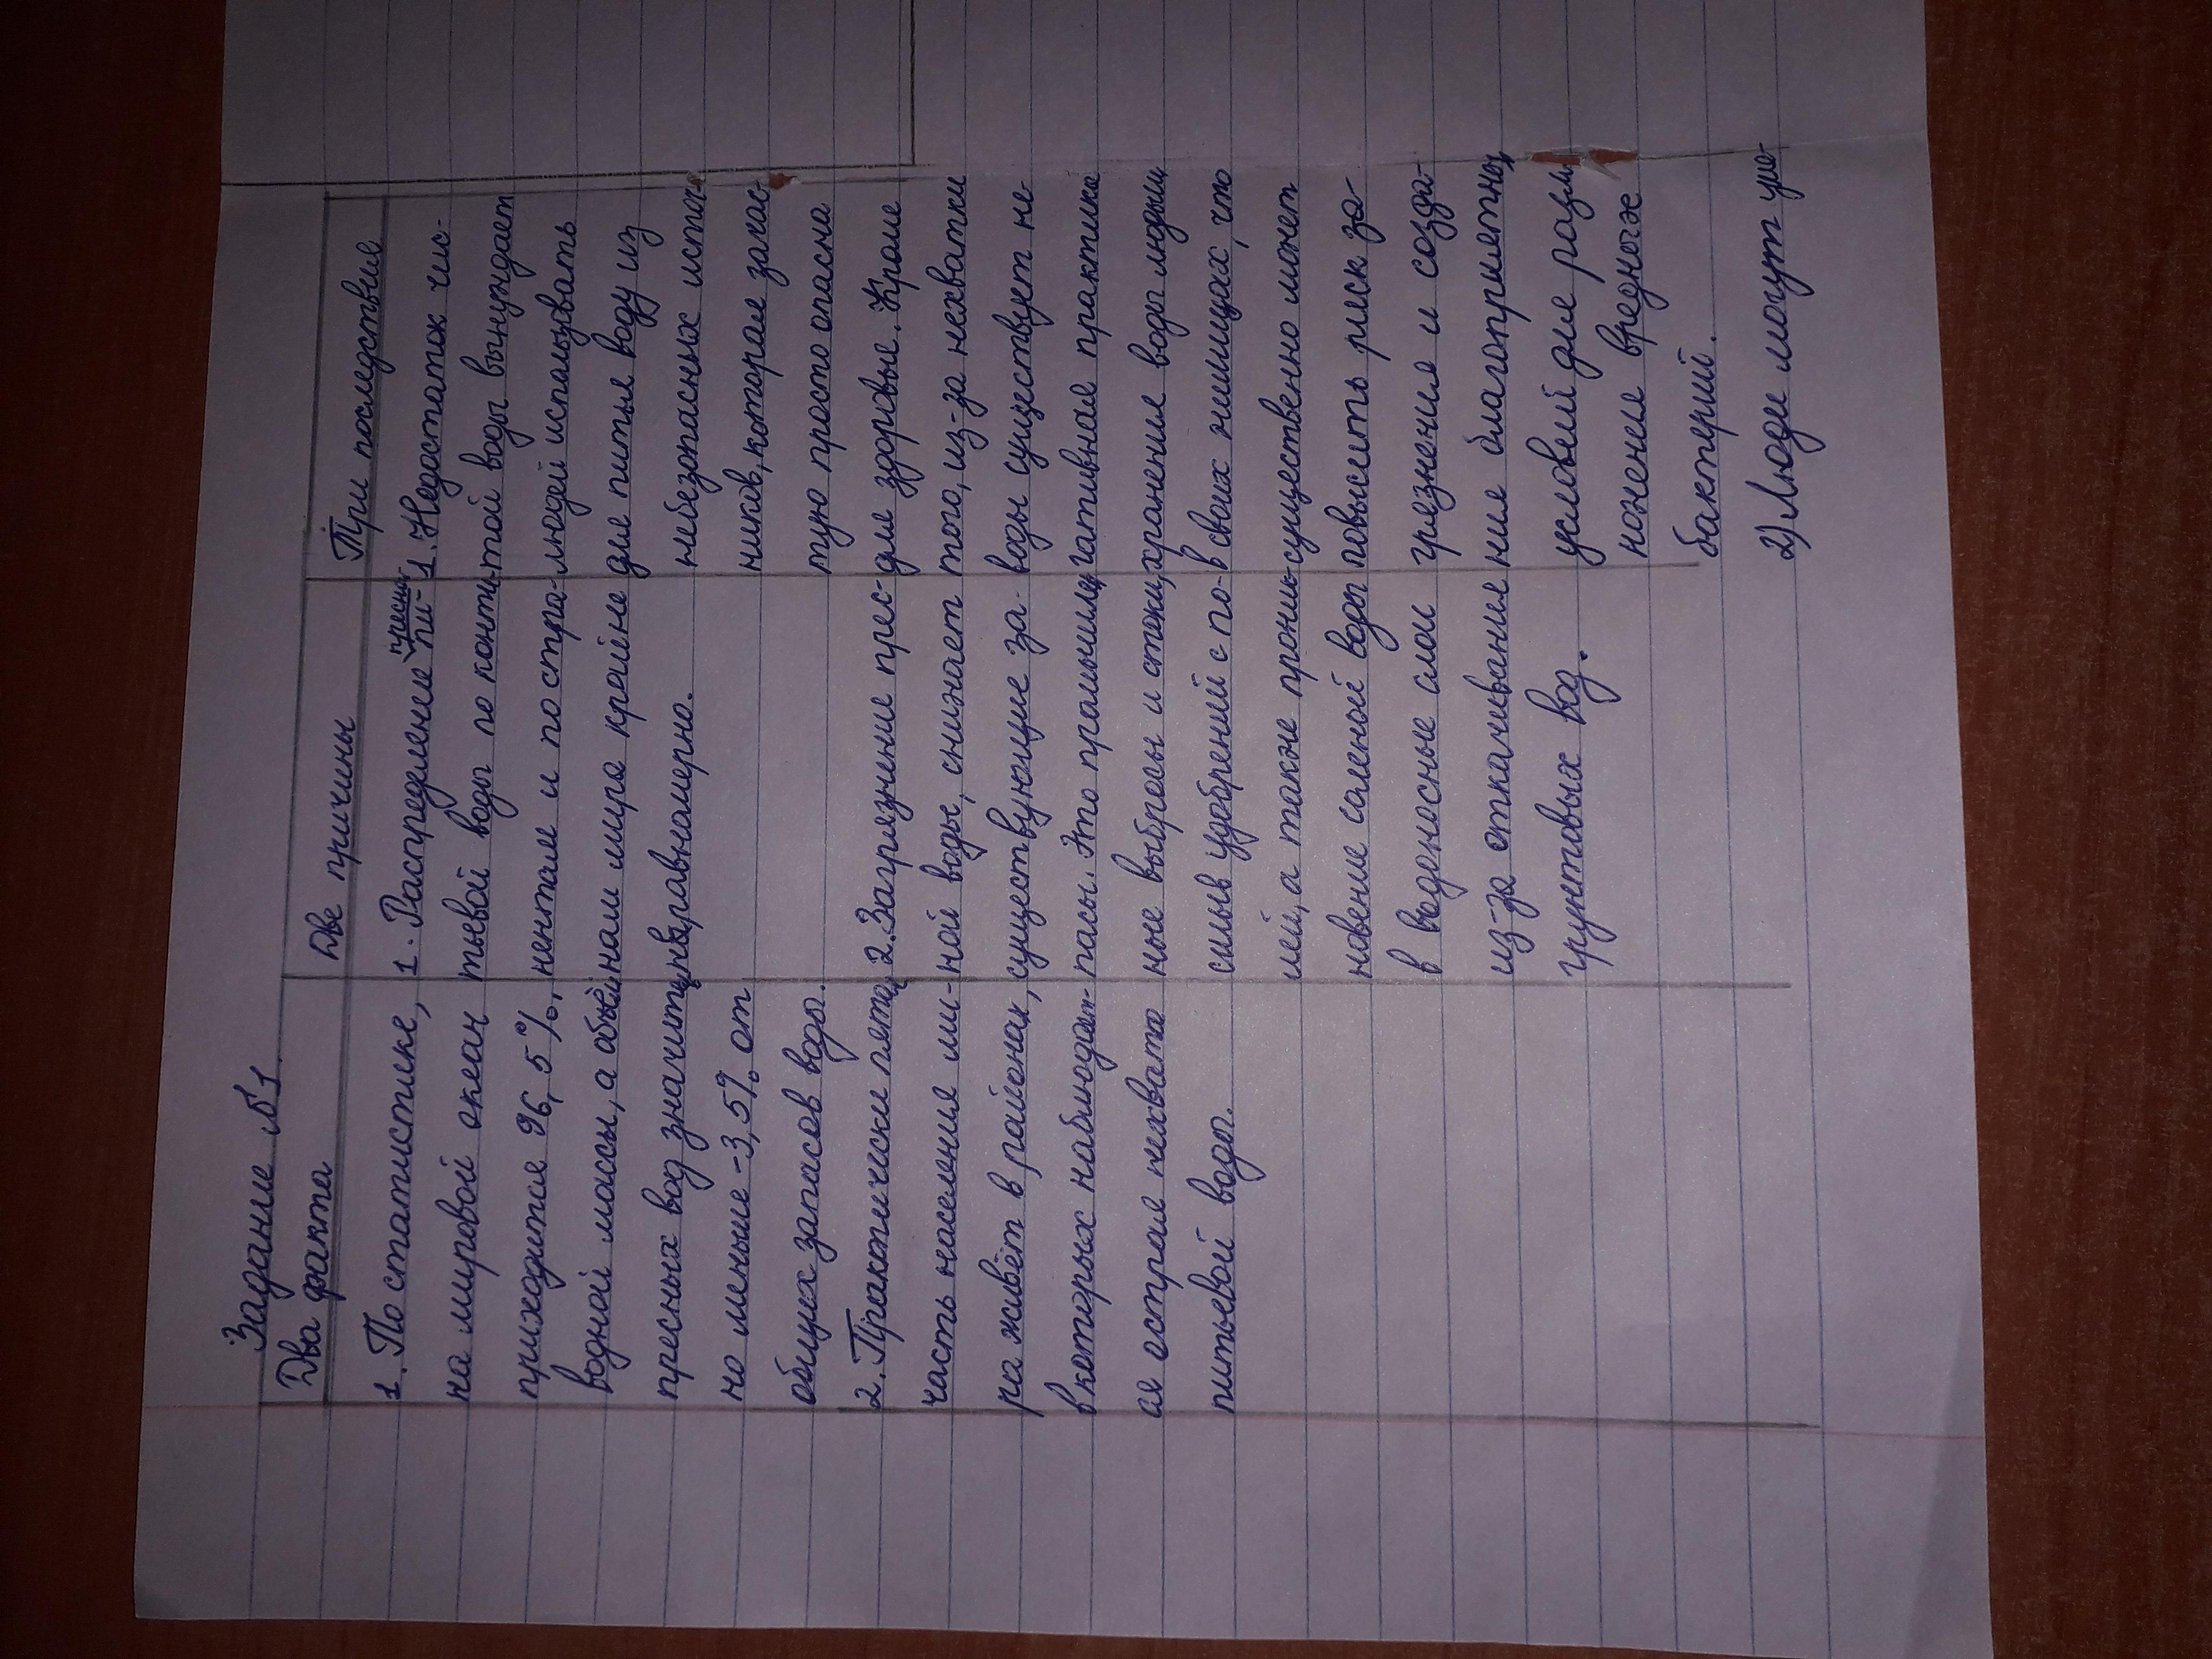 Задание №1.
Два факта
1. По статистике,
на мировой океан
приходится 96,5%,
водной массы, а объём
пресных вод значитель
но меньше -3,5% от
общих запасов воды.
2. Практически пятая
часть населения ми-
ра живёт в районах,
в которых наблюдает-
ся острая нехватка
питьевой воды.
Две причины
1. Распределение пресной пи-
тьевой воды по конти-
нентам и по стра-
нам мира крайне
неравномерно.
2. Загрязнение прес-
ной воды, снижает
существующие за-
пасы. Это промышлен
ные выбросы и стоки,
смыв удобрений с по-
лей, а также проник-
новение соленой воды
в водоносные слои
из-за откачивания
грунтовых вод.
Три последствия
1. Недостаток чис-
той воды вынуждает
людей использовать
для питья воду из
небезопасных источ-
ников, которая зачас-
тую просто опасна
для здоровья. Кроме
того, из-за нехватки
воды существует не
гативная практика
хранения воды людьми
в своих жилищах, что
существенно может
повысить риск за-
грязнения и созда-
ния благоприятных
условий для разм
ножения вредных
бактерий.
2) Люди могут уме-